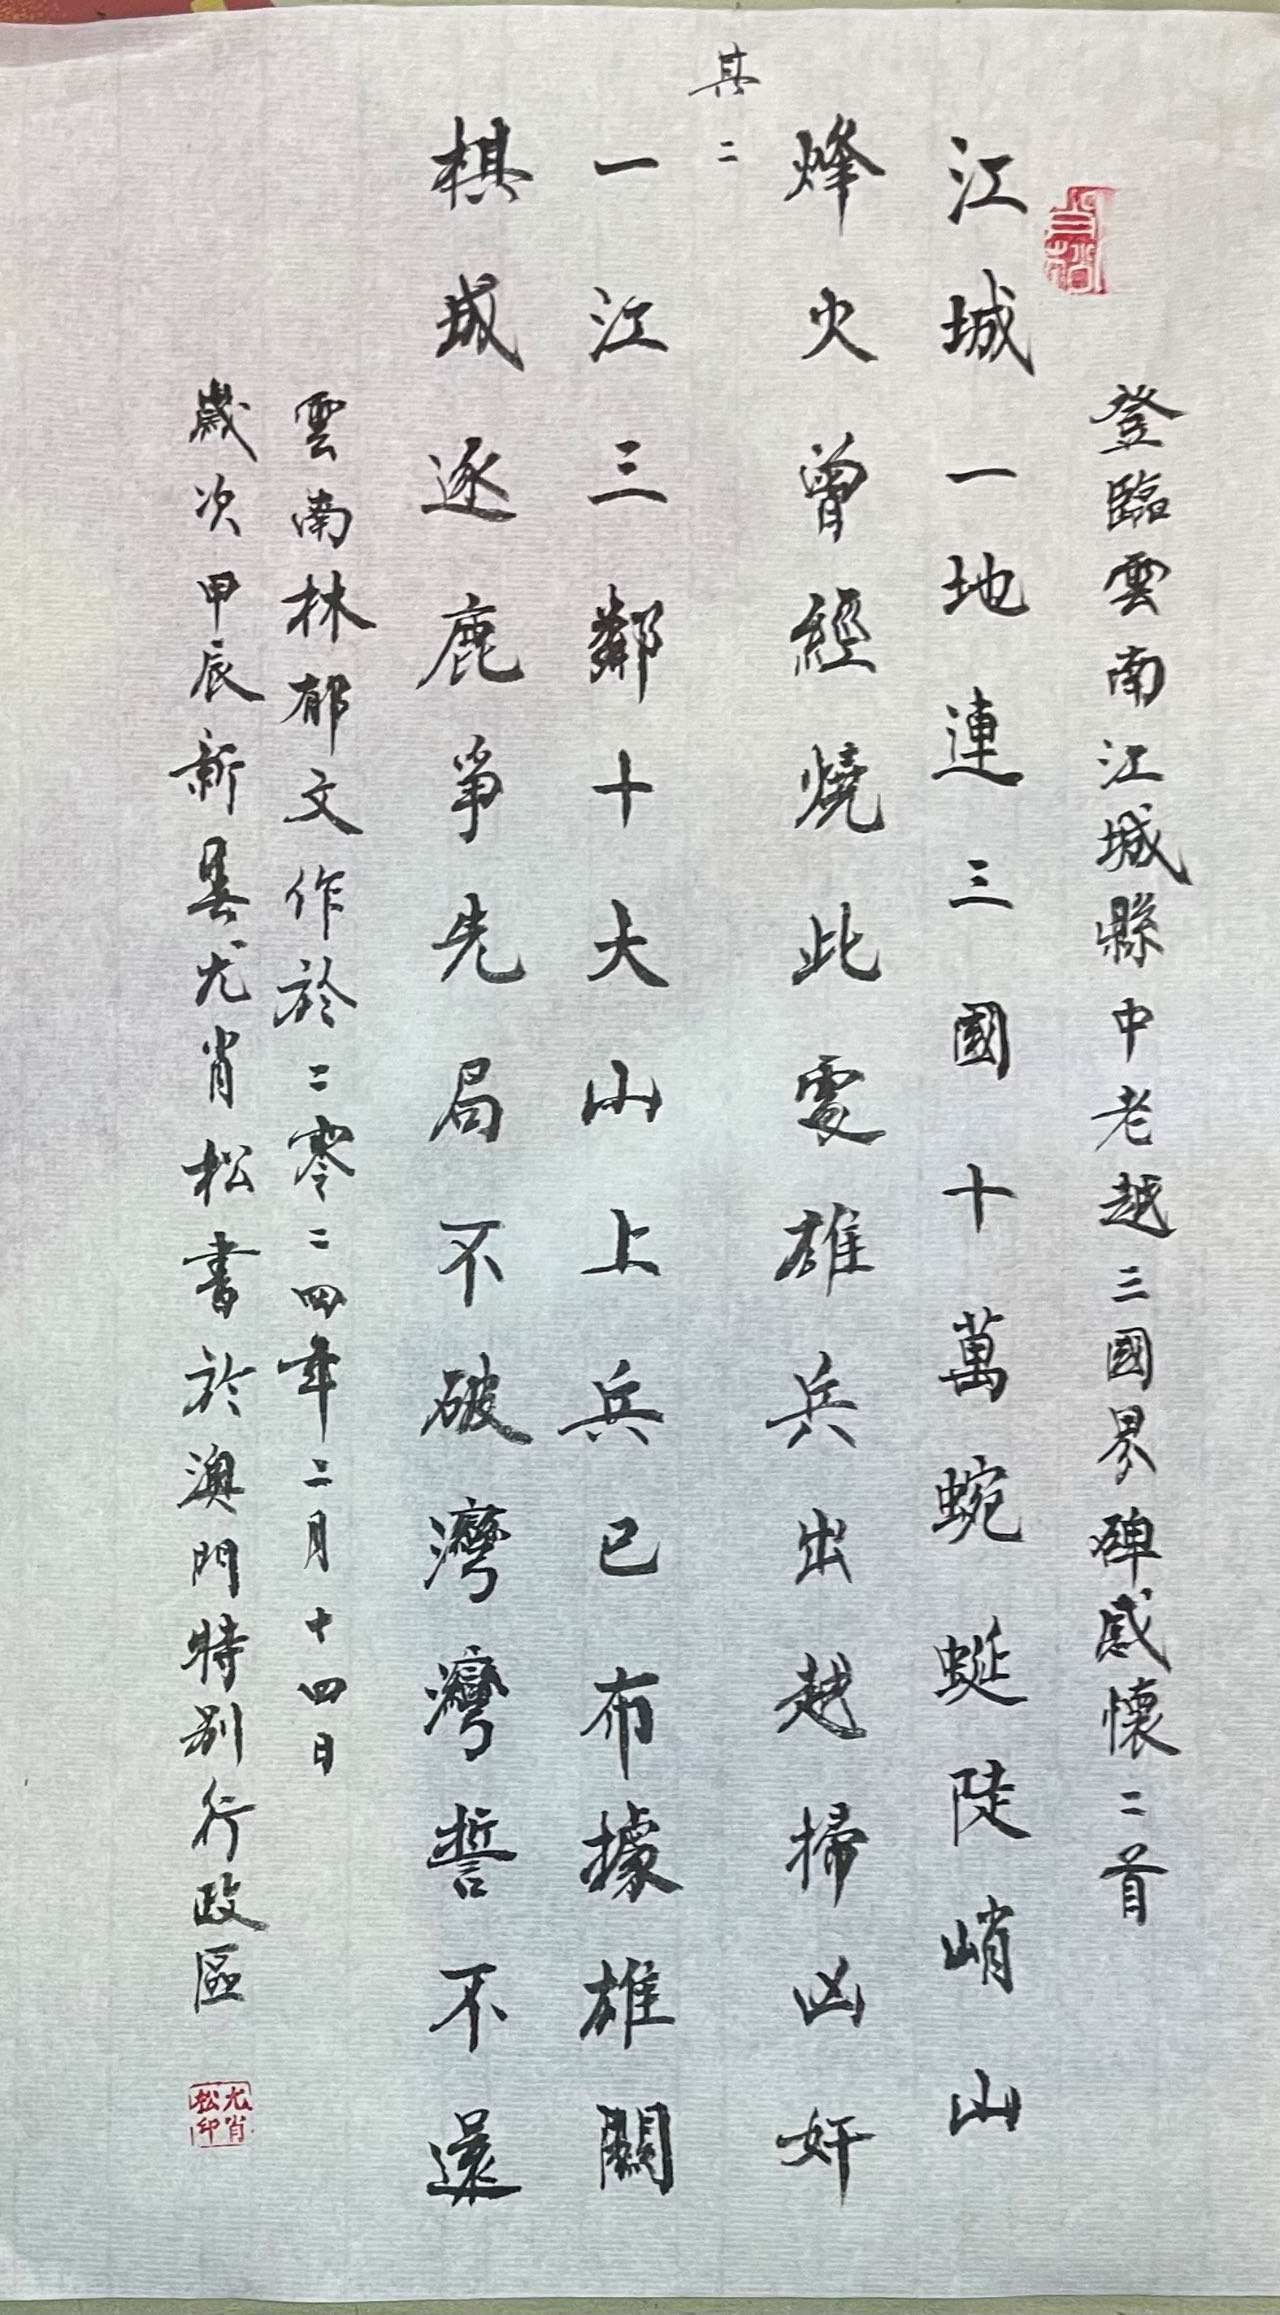 登臨雲南江城縣中老越三國界碑感懷二首
江城一地連三國十萬蜿蜒陡峭山
烽火曾經燒此處雄兵出越掃凶奸
其二
一江三鄰十大山上兵已布據雄關
棋城逐鹿爭先局不破灣灣誓不還
雲南林郁文作於二零二四年二月十四日
歲次甲辰新曇尤肖松書於澳門特別行政區
尤肖松印